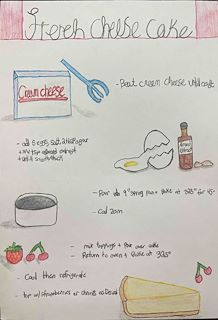 French Cheese Cake
Cream cheese
- Beat cream cheese until soft
- add 5 eggs, salt 2 tbsp sugar
- add tsp almond extract
+ beat smooth/thick
almond extract
- Pour into 9" spring pan + Bake at 325° for 45-
- Cool 20m
- mix toppings + Pour over cake
- Return to oven + Bake at 325°
- Cool then refrigerate
- top w/ strawberries or cherries as Desired